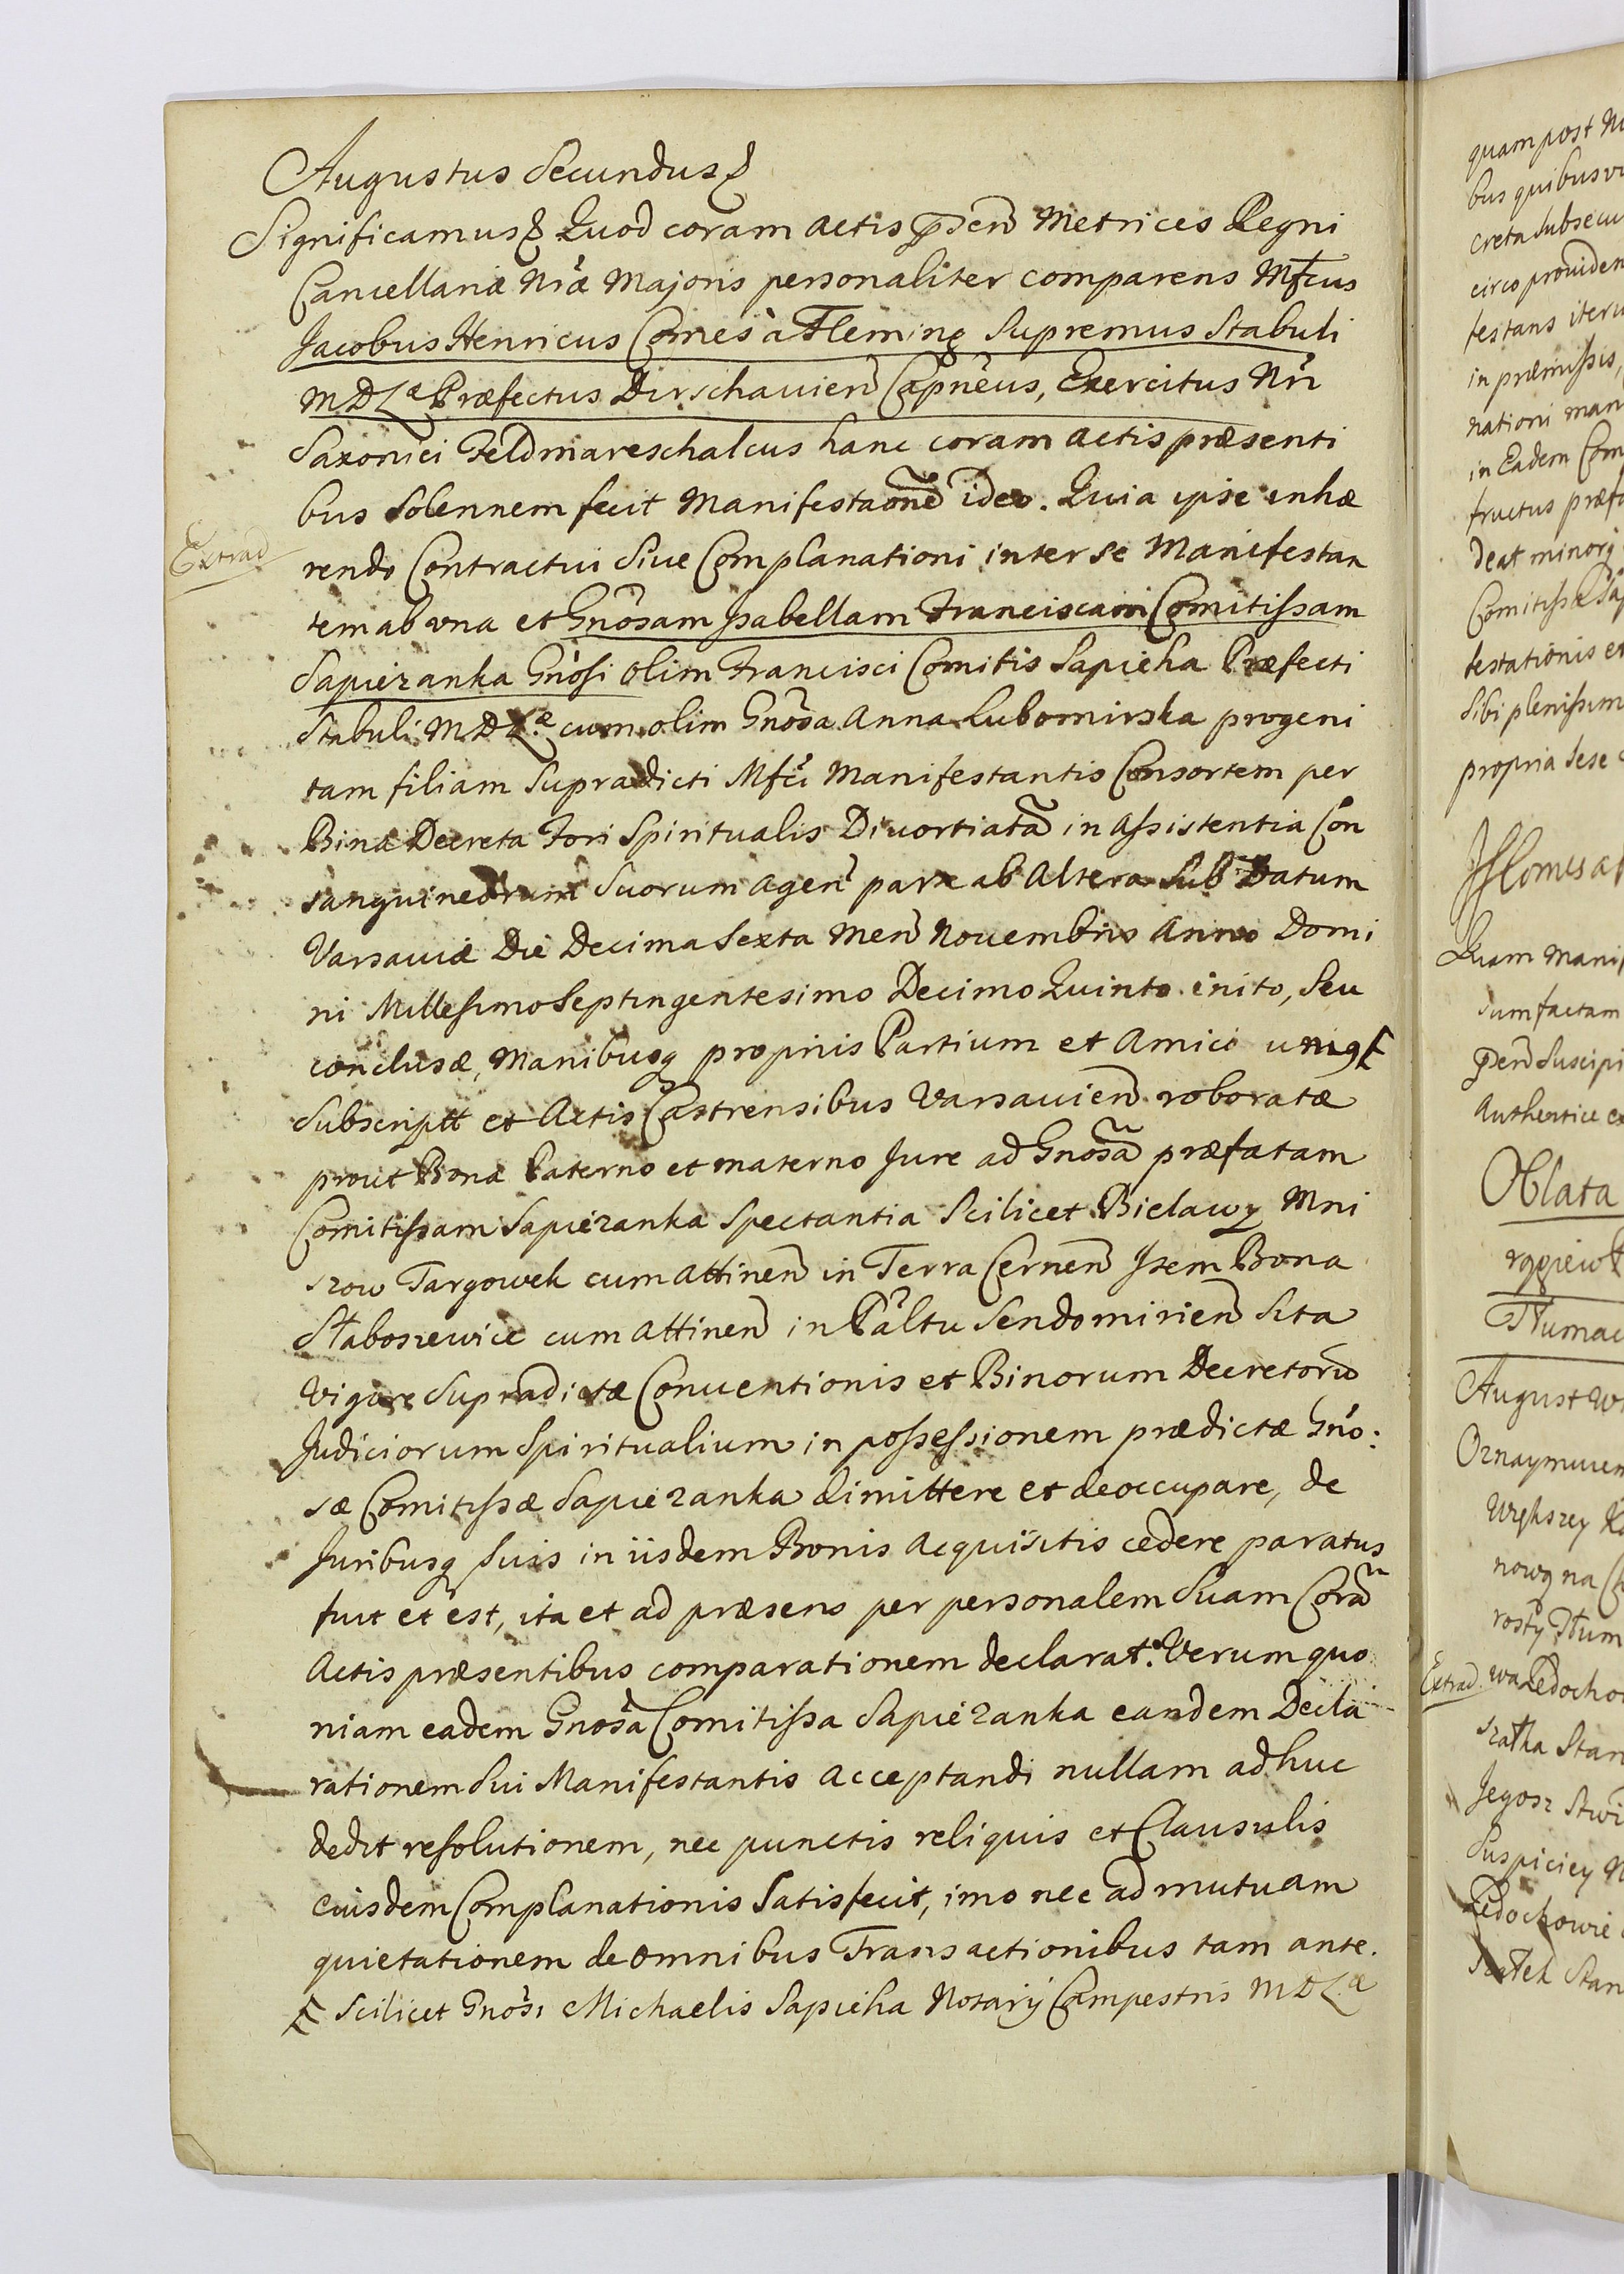 Augustus Secundus &
Significamus & Quod coram actis p̄sen Metrices Regni
Cancellariæ Nr̃æ Majoris personaliter comparens Mfcus
Jacobus Henricus Comes à Fleming Supremus Stabuli
MDLæ Præfectus Dirschauien Capneus, Exercitus Nri
Saxonici Feldmareschalcus hanc coram actis præsenti
bus Solennem fecit Manifestaonẽ ideo. Quia ipse inhæ
rendo Contractui Siue Complanationi inter se Manifestan
Extrad
tem ab vna et Gnosam Jsabellam Franciscam Comitissam
Sapiezanka Gnosi olim Francisci Comitis Sapieha Præfecti
Stabuli MDLæ cum olim Gnosa Anna Lubomirska progeni
tam filiam Supradicti Mfci Manifestantis Consortem per
Bina Decreta Fori Spiritualis Diuortiatã in Assistentia Con
sanguineorum Suorum agen parte ab Altera Sub Datum
Varsauiæ Die Decima Sexta Men Nouembris Anno Domi
ni Millesimo Septingentesimo Decimo Quinto inito, Seu
conclusæ, Manibusq propriis Partium et Amici unigȩ
Subscriptt et Actis Castrensibus Varsauien roboratæ
prout Bona Paterno et materno Jure ad Gnosã præfatam
Comitissam Sapiezanka Spectantia Scilicet Bielawy Mni
szow Targowek cum attinen in Terra Cernen Jtem Bona
Słaboszewice cum attinen in Pałtu Sendomirien Sita
Vigore Supradictæ Conuentionis et Binorum Decretorũ
Judiciorum Spiritualium in possessionem prædictæ Gno:
sæ Comitissæ Sapiezanka dimittere et deoccupare, de
Juribusq Suis in iisdem Bonis acquisitis cedere paratus
fuit et est, ita et ad præsens per personalem Suam Corã
Actis præsentibus comparationem declarat. Verum quo
niam eadem Gnosa Comitissa Sapiezanka eandem Decla
rationem Sui Manifestantis acceptandi nullam adhuc
dedit resolutionem, nec punctis reliquis et Clausulis
eiusdem Complanationis Satisfecit, imo nec ad mutuam
quietationem de omnibus Transactionibus tam ante.
Scilicet Gnosi Michaelis Sapieha Notarij Campestris MDLæ
quam post
bus quibus
creta Subsecu
circo prouiden
festans iteru
in præmissis,
nationi man
in Eadem Com
fructus præfa
deat minorq
Comitissæ Sap
testationis et
Sibi plenissim
propria Sese
JHComes a
Quam Manif
Sum factam
p̄sen Suscipi
Authentice
Oblata
Tłumac
August
Oznaymuiem
Większey
nowq na
Tłum
Extrad
wa Ledocho
szatka Stan
Jegosz
Suspiciey
Ledochowie
Szatek Stan